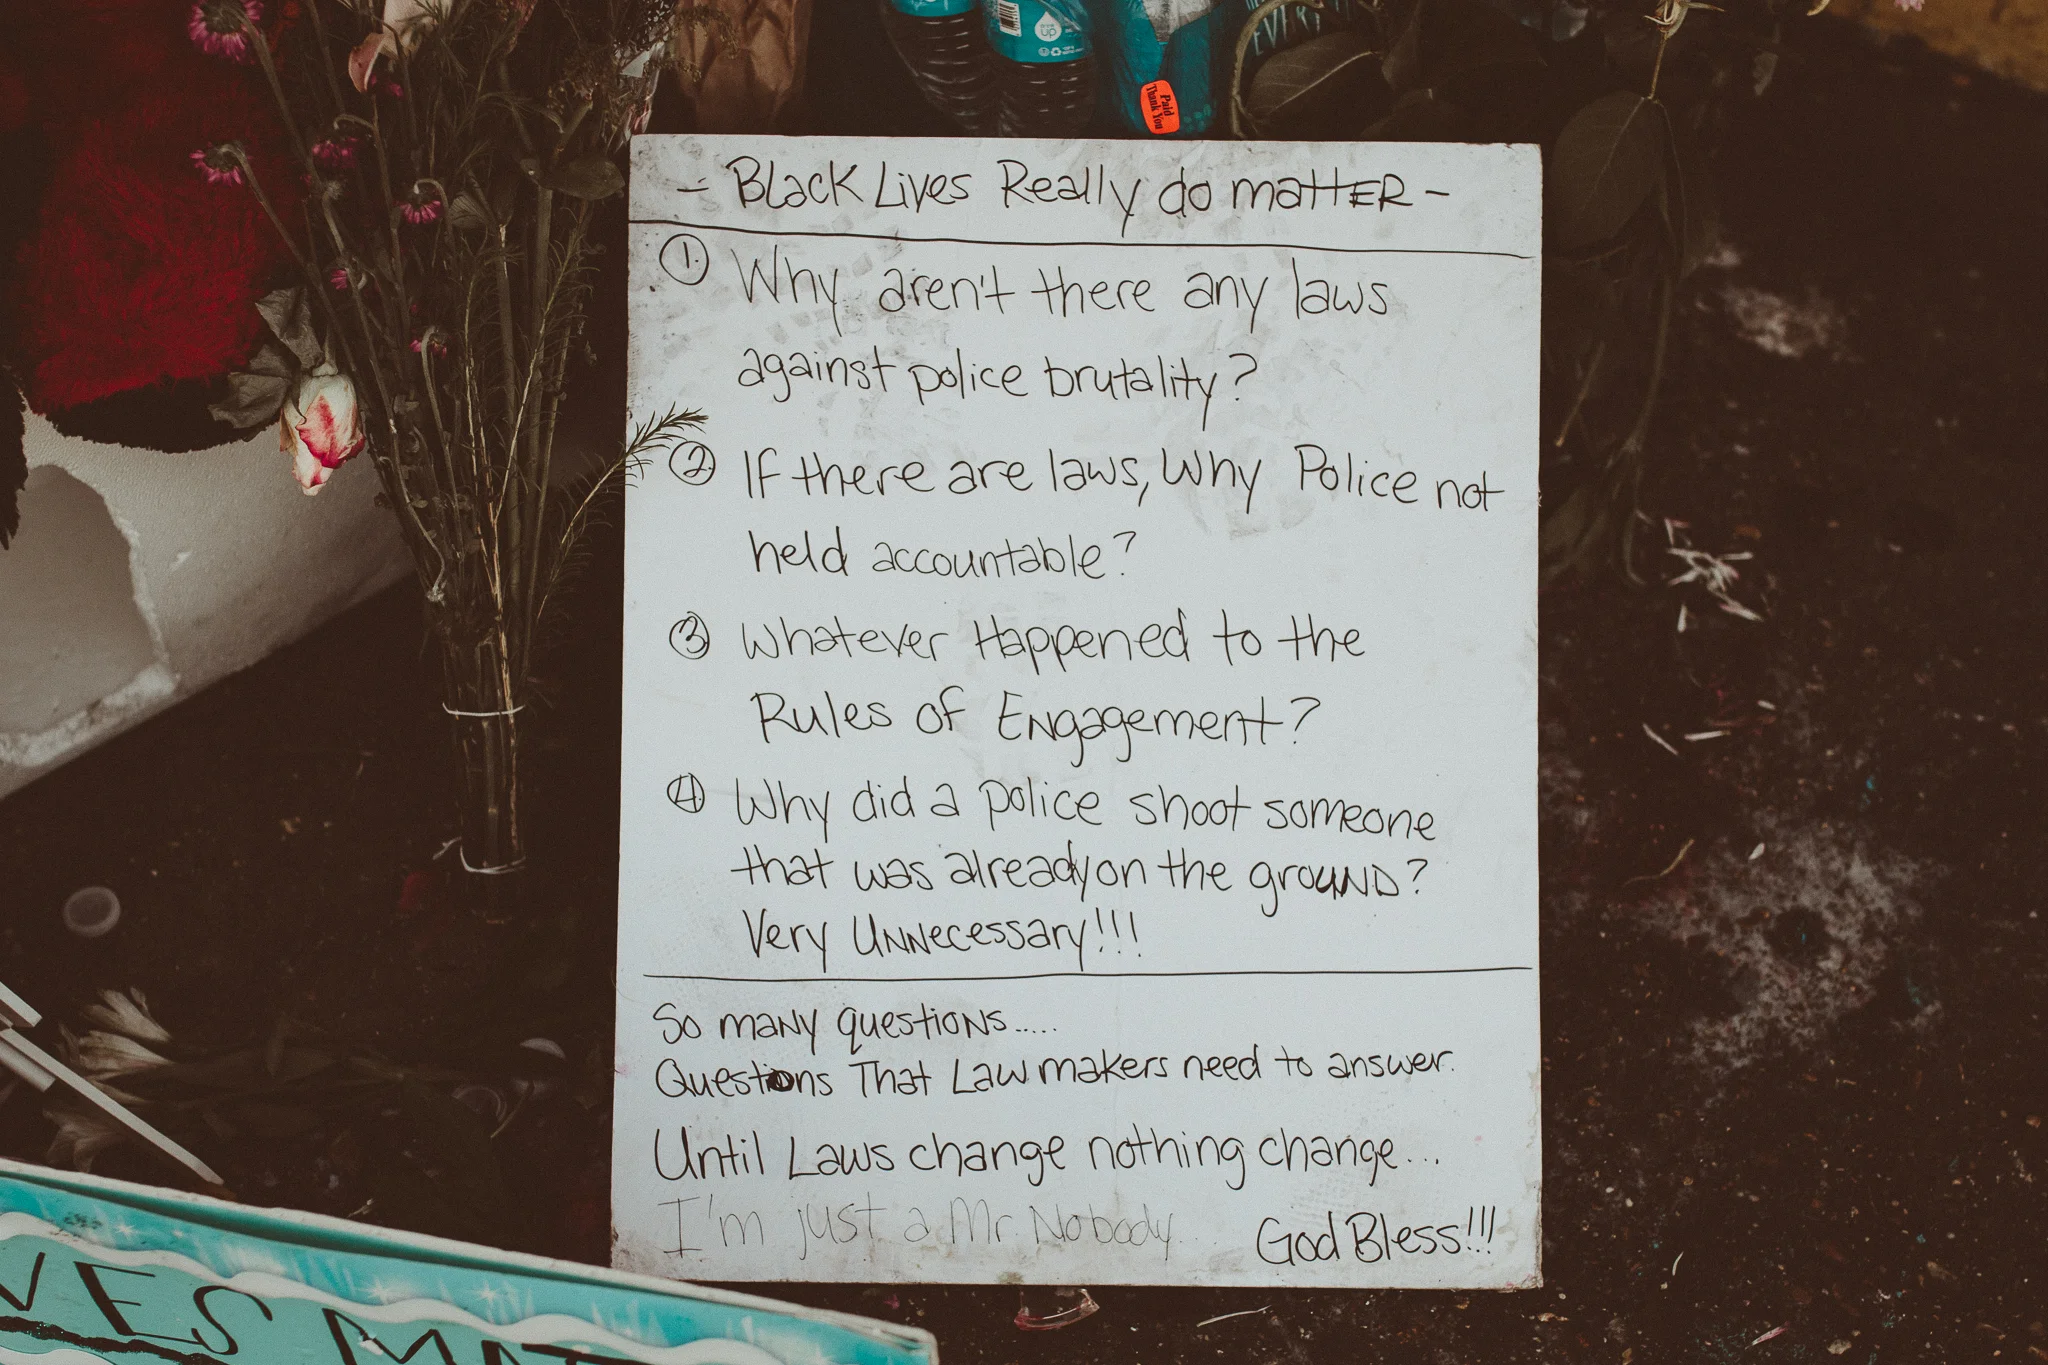 up
EVERY
Paid
Thank You
- Black Lives Really do mattER -
1. Why aren't there any laws
against police brutality?
2. If there are laws, Why Police not
held accountable?
3 Whatever Happened to the
Rules of Engagement?
4 Why did a police shoot someone
that was already on the groUND?
Very UNNecessary!!!
So maNy questioNs.....
Questions That Law makers need to answer.
Until Laws change nothing change...
I'm just a Mr. Nobody...
God Bless!!!
VES MAT